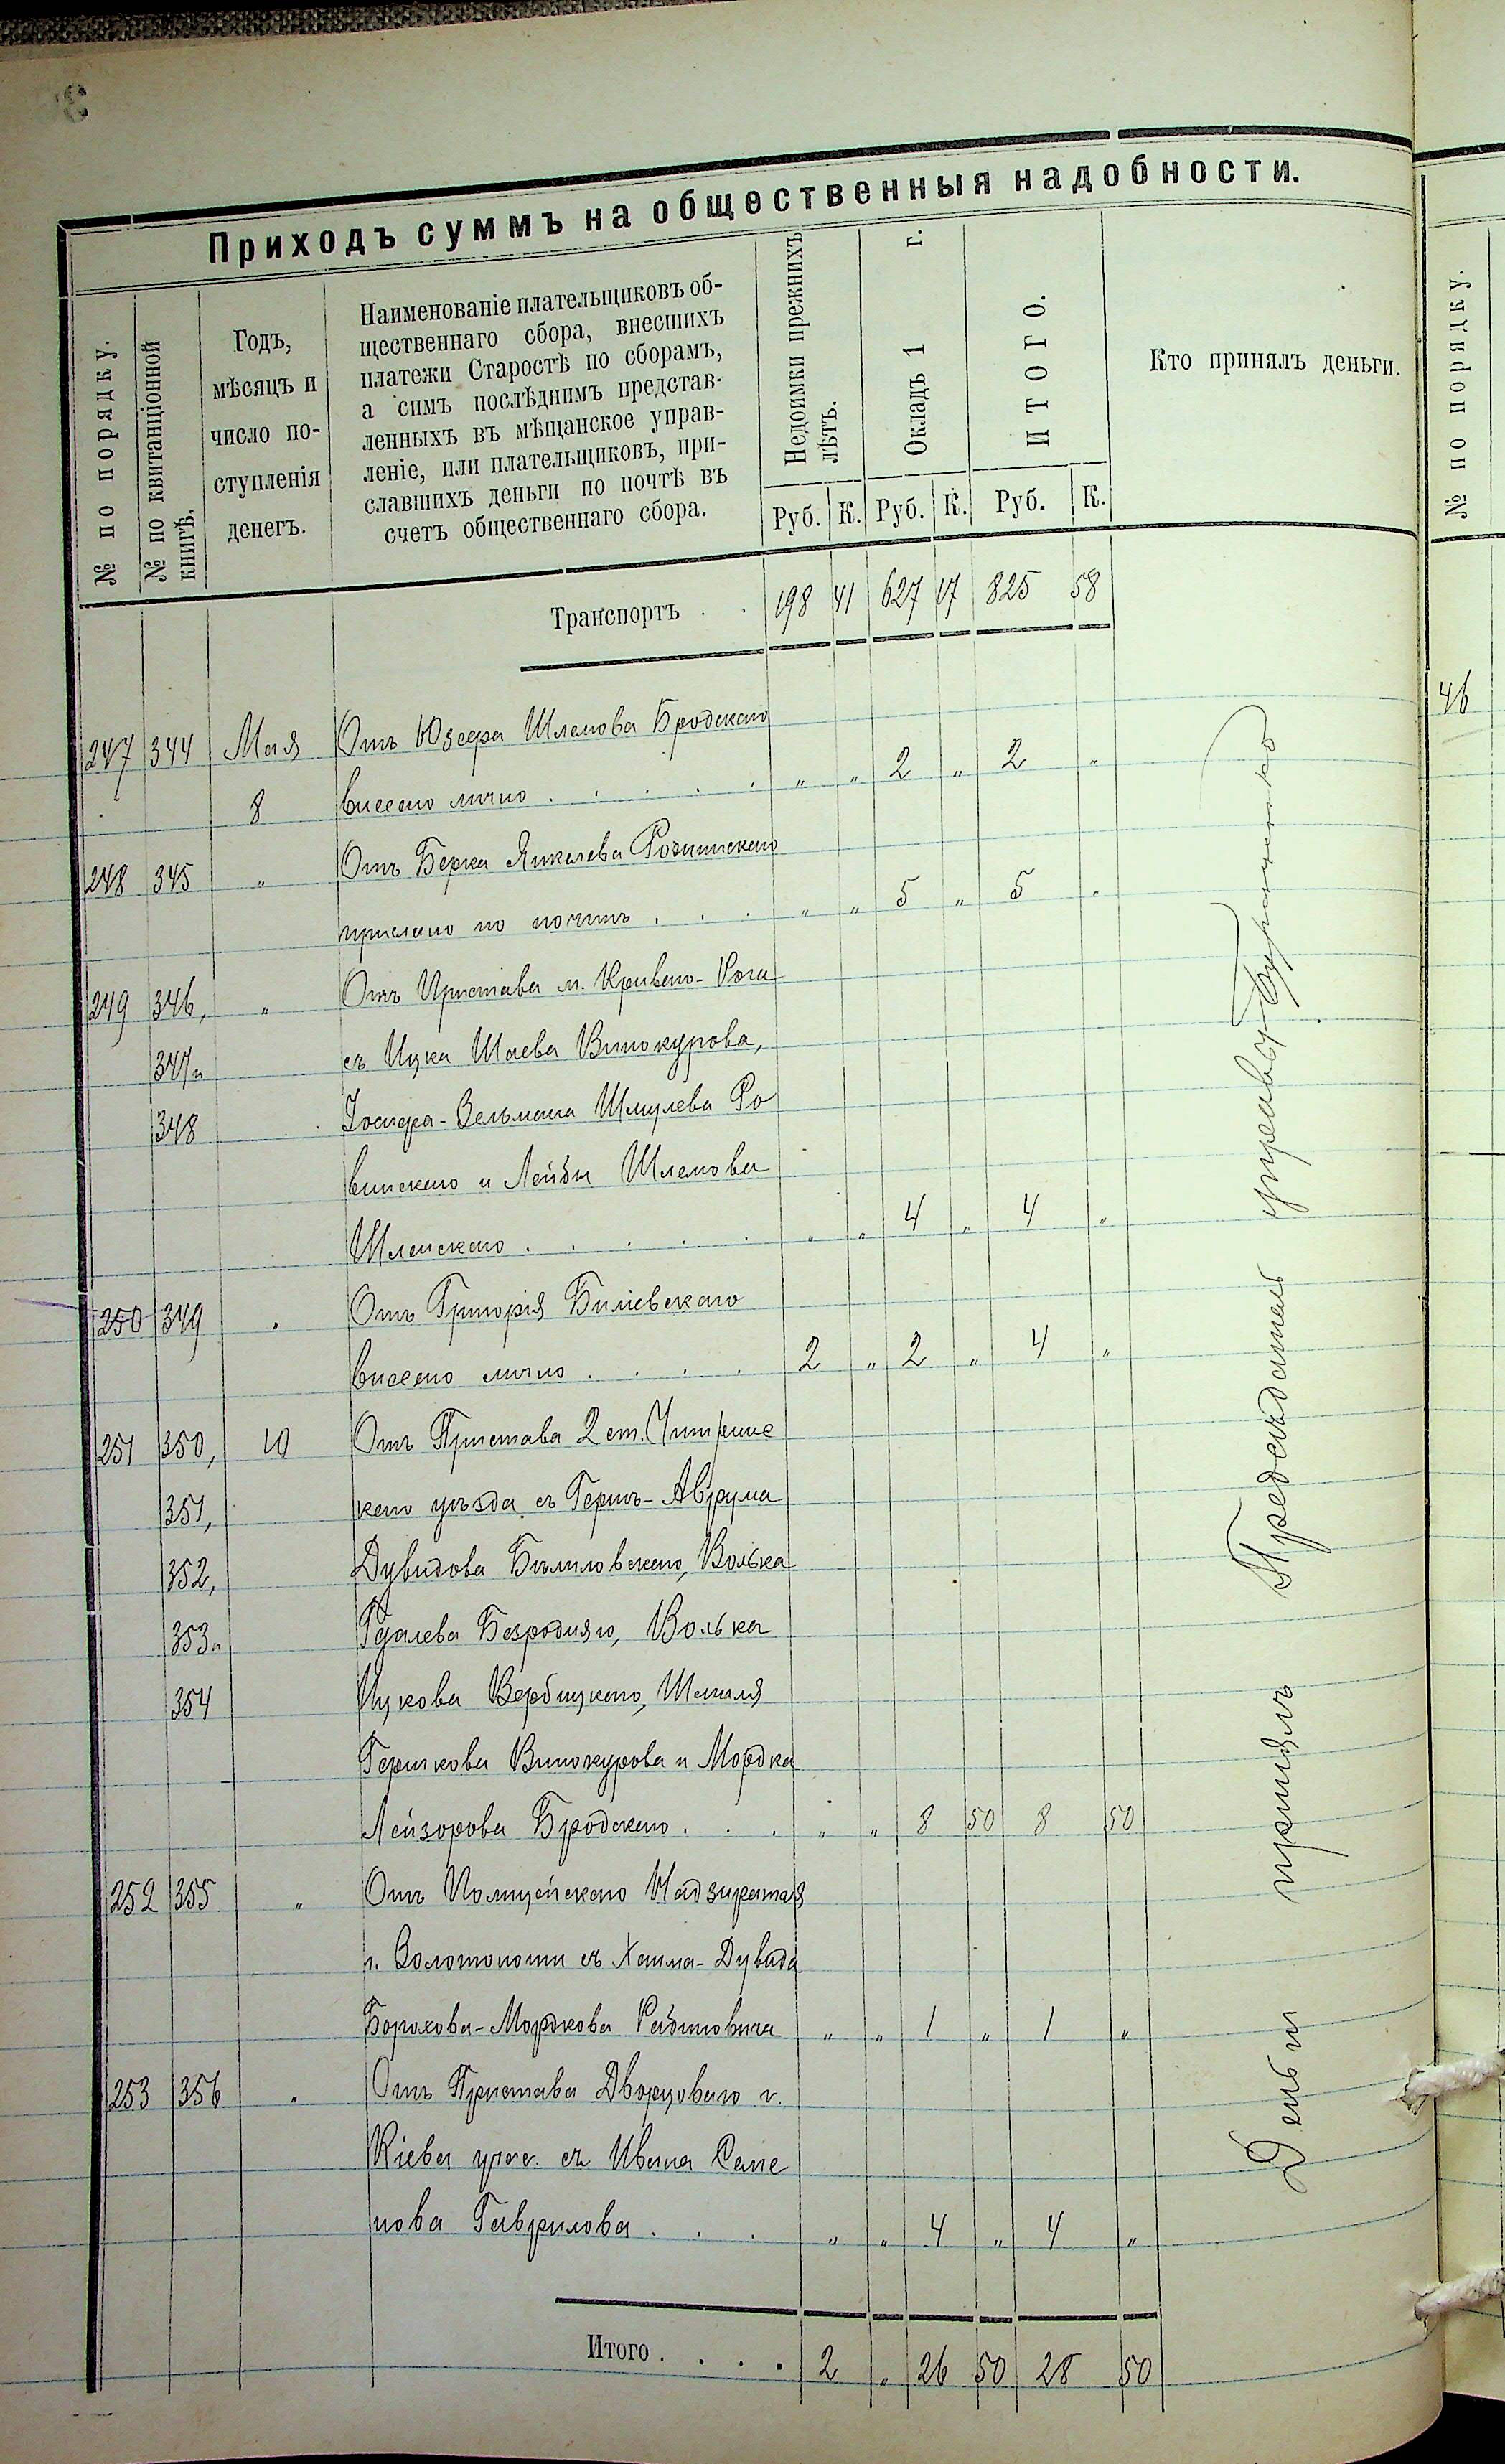 Приходъ суммъ на общественныя надобности.
№ по порядку.
№ по квитанціонной книгѣ.
Годъ,
мѣсяцъ и
число по-
ступленія
денегъ.
Наименованіе плательщиковъ об-
щественнаго сбора, внесшихъ
платежи Старостѣ по сборамъ,
а симъ послѣднимъ представ-
ленныхъ въ мѣщанское управ-
леніе, или плательщиковъ, при-
славшихъ деньги по почтѣ въ
счетъ общественнаго сбора.
Недоимки прежнихъ
лѣтъ.
Окладъ 1 г.
ИТОГО.
Кто принялъ деньги.
№ по порядку.
Руб. К. Руб. К. Руб. К.
Транспортъ . . 198 41 627 17 825 58
46
247 344 Мая Отъ Юзефа Шлемова Бродскаго
8 внесено лично . . . . . " " 2 " 2 "
248 345 " Отъ Берка Янкелева
прислано по почтѣ . . . " " 5 " 5 "
249 346, " Отъ Пристава м. Криваго-Рога
347 и съ Ицка Шаева Винокурова,
348 Іосифа-Зельмана Шмулева Ро
винскаго и Лейбы Шлемова
. . . . . " " 4 " 4 "
250 349 " Отъ Григорія
внесено лично . . . . 2 " 2 " 4 "
251 350, 10 Отъ Пристава 2 ст. Чигринс
351, каго уѣзда съ Герша-Аврума
352, Дувидова Бѣлиловскаго, Волька
353 и Гдалева Безроднаго, Волька
354 Ицкова Вербицкаго,
Гершкова Винокурова и Мордка
Лейзорова Бродскаго . . . " " 8 50 8 50
252 355 " Отъ Полицейскаго Надзирателя
г. Золотоноши съ Хаима-Дувида
Борохова-Мордкова Рабиновича " " 1 " 1 "
253 356 " Отъ Пристава Дворцоваго г.
Кіева учас. съ Ивана Семе
нова Гаврилова . . . " " 4 " 4 "
Итого . . . . 2 " 26 50 28 50
Деньги принялъ Предсѣдатель управы